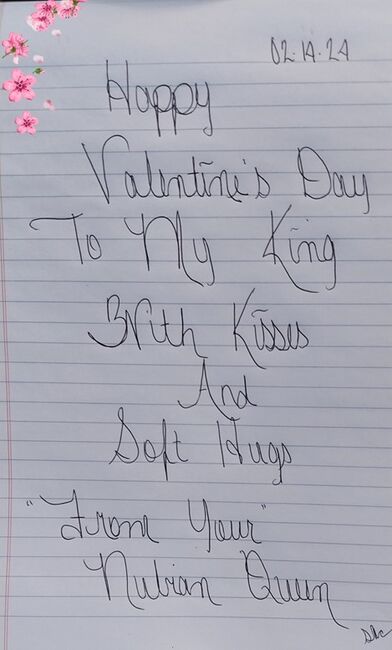 02.14.24
Happy
Valentine's Day
To My King
With Kisses
And
Soft Hugs
"From Your"
Nubian Queen